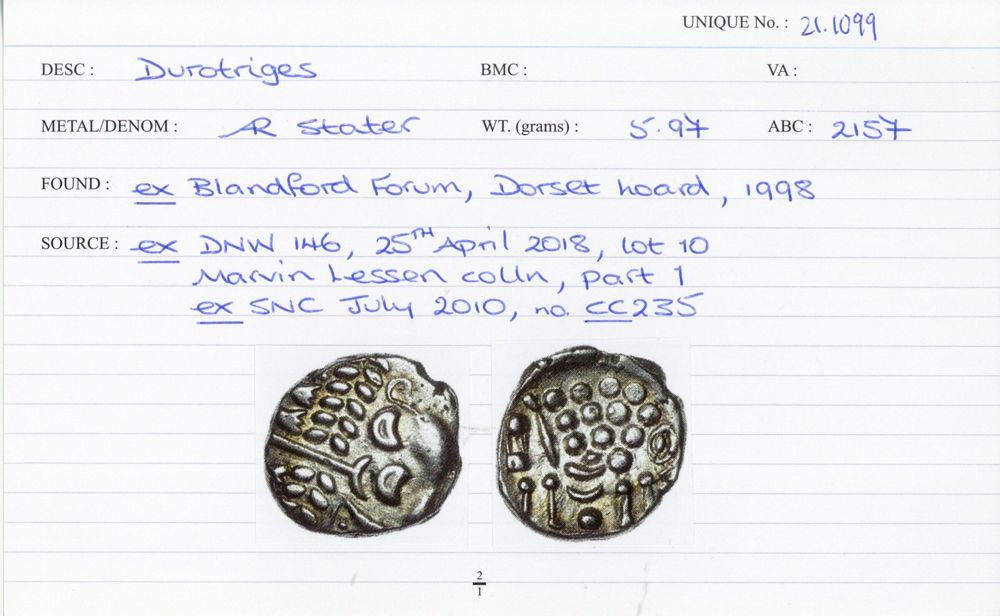 UNIQUE No. : 21.1099
DESC : Durotriges BMC : VA :
METAL/DENOM : AR Stater WT. (grams) : 5.97 ABC : 2157
FOUND : ex Blandford Forum, Dorset hoard, 1998
SOURCE : ex DNW 146, 25TH April 2018, lot 10
Marvin Lessen colln, part 1
ex SNC July 2010, no. CC235
2
1